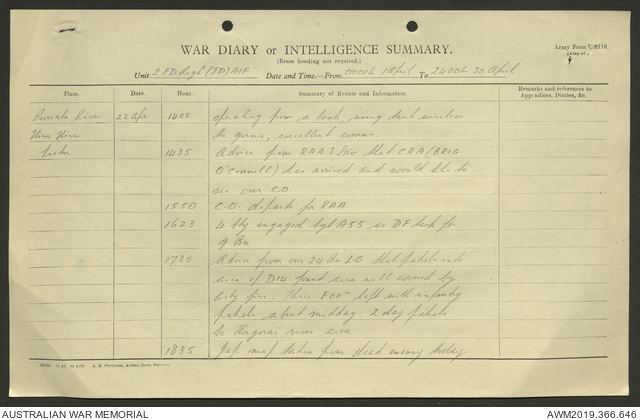 WAR DIARY or INTELLIGENCE SUMMARY.
(Erase heading not required.)
Army Form C.2118.
Unit 2 FD Regt (TD) AIF Date and Time.—From 0001L 1 April To 2400L 30 April
Place. Date. Hour. Summary of Events and Information. Remarks and references to Appendices, Diaries, &c.
Puriata River 22 Apr 1400 operating from a tank, using tank wireless
to guns, excellent comms
1435 Advice from RAA 3 Div that CRA (BRIG
O'Connell) has arrived and would like to
see our C.O.
1550 C.O. departs for RAA
1623 4 Bty engaged tgt A55 as DF task for
9 Bn
1730 Advice from our 24 Bn LO that patrols into
area of D14 found area well covered by
arty fire. Three FOO's left with infantry
patrols about midday. 2 day patrols
to Hongorai river area
1835 Jap map taken from dead enemy today
AUSTRALIAN WAR MEMORIAL
AWM2019.366.646